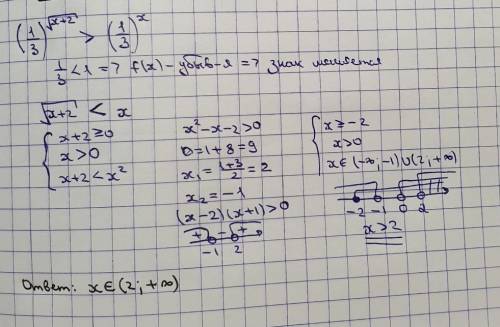 (1/3)^√(x+2) > (1/3)^x
1/3 < 1 => f(x) - убыв-я => знак меняется
√(x+2) < x
{ x+2 ≥ 0
x > 0
x+2 < x²
x² - x - 2 > 0
D = 1 + 8 = 9
x₁ = (1+3)/2 = 2
x₂ = -1
(x-2)(x+1) > 0
+ - +
-1 2
{ x ≥ -2
x > 0
x ∈ (-∞; -1) ∪ (2; +∞)
-2 -1 0 2
x > 2
Ответ: x ∈ (2; +∞)